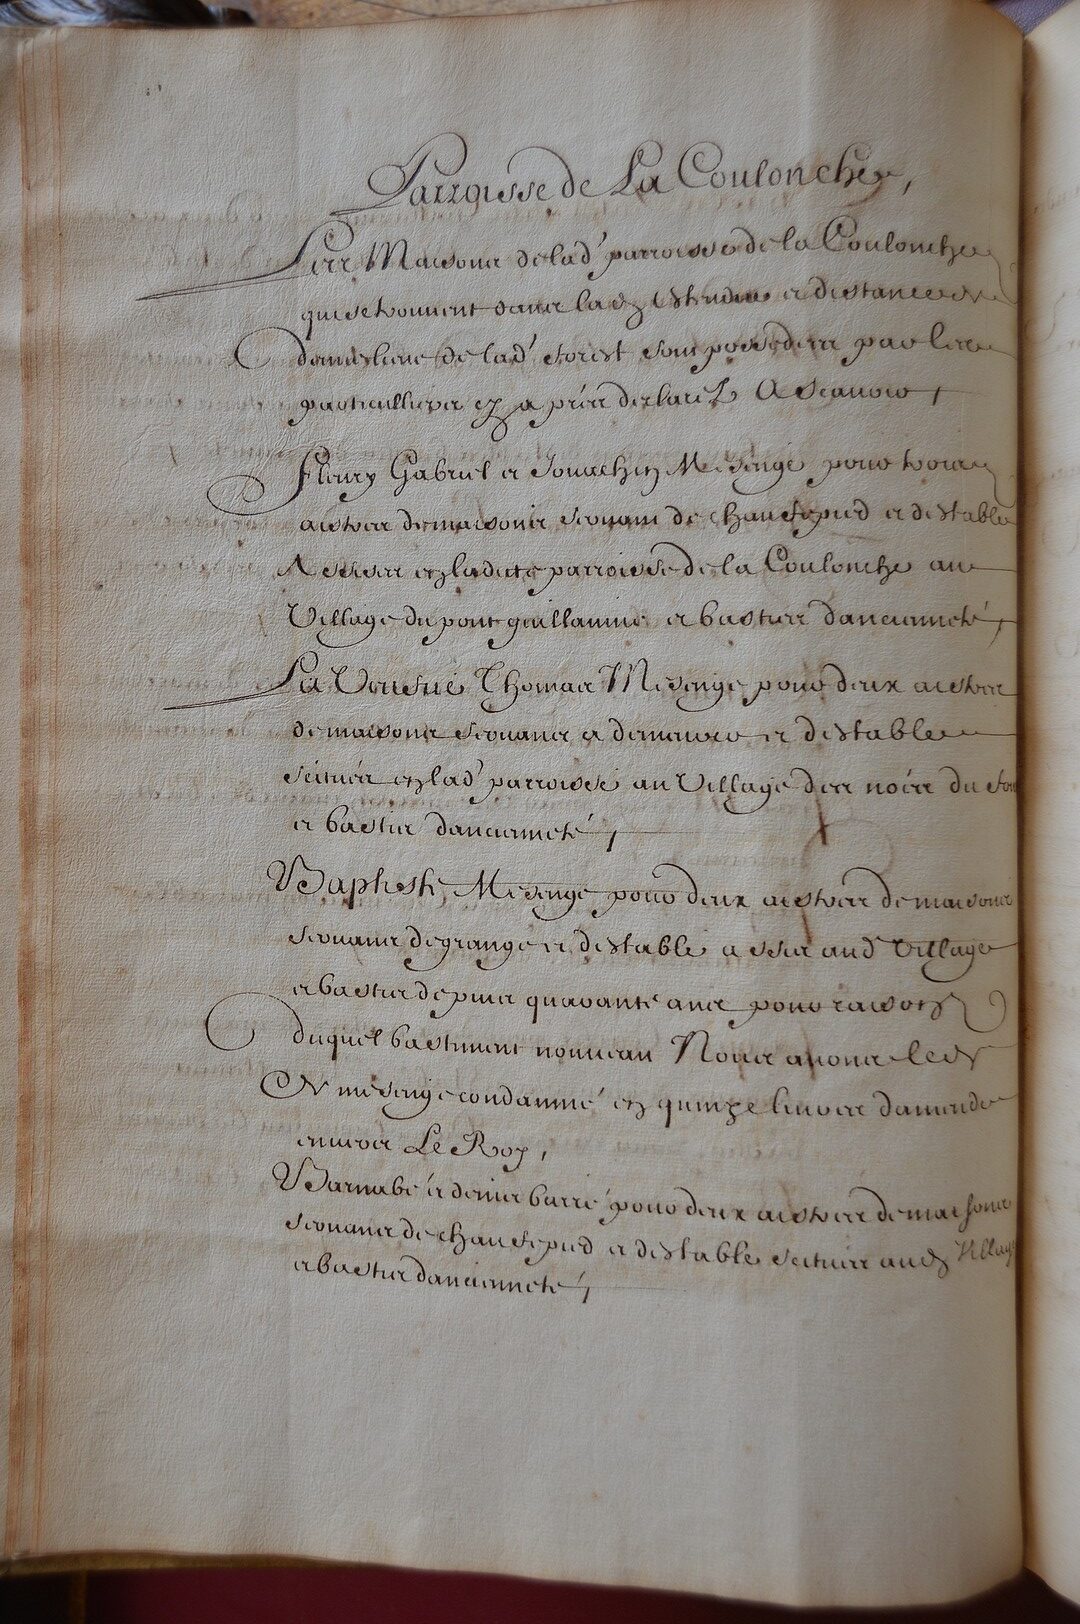 Parroisse de La Coulonche,
Les Maisons de lad' parroisse de la Coulonche
qui se trouvent dans lad estendue et distance
demie lieue de lad' forest sont possedees par les
particulliers cy apres declarez Ascavoir,
Fleury Gabriel et Jouachin Mesenge pour trois
aistres de maisons servant de chaufepied et destable
Assises en ladite parroisse de la Coulonche au
Village du pont guillaumé et basties dancienneté,
La Veufue Thomas Mesenge pour deux aistres
de maisons servans a demeure et destable
scituées en lad' parroisse au Village des noës du
et basties danciennété,
Baptiste Mesenge pour deux aistres de maisons
servans de grange et destable assis aud Village
et basties depuis quarante ans pour raison
Duquel bastiment nouveau Nous avons led
mesenge condamné en quinze livres damende
envers Le Roy,
Barnabé et denis barré pour deux aistres de maisons
servans de chaufepied et destable scitués aud Village
et basties danciennété,